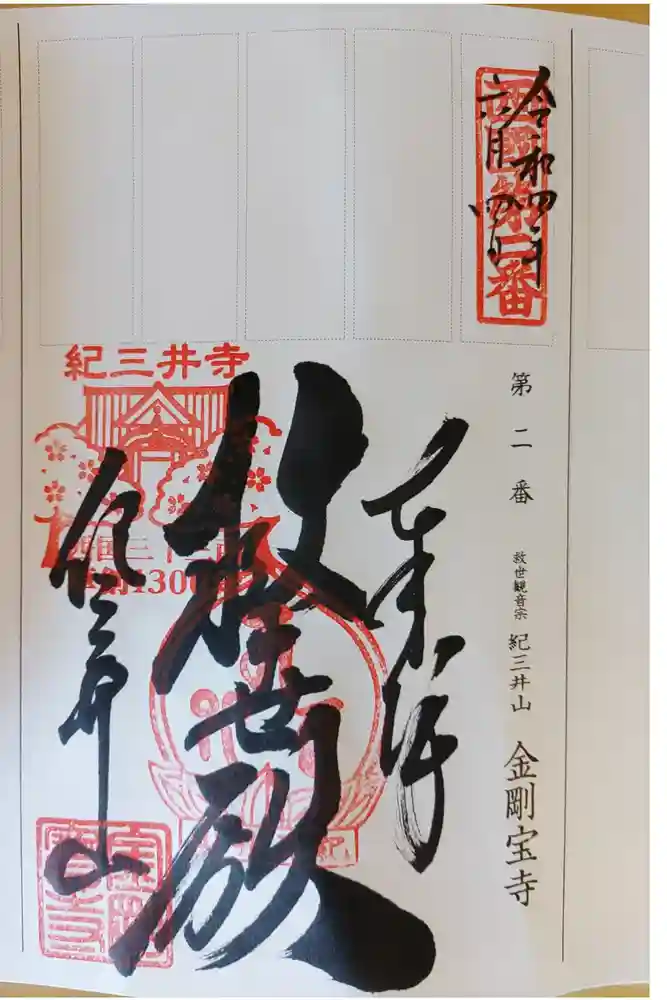 令和四年
六月四日
西国第二番
第二番 救世観音宗 紀三井山 金剛宝寺
奉拝
救世殿
紀三井山
紀三井寺
西国三十三所
草創1300年
金剛宝寺